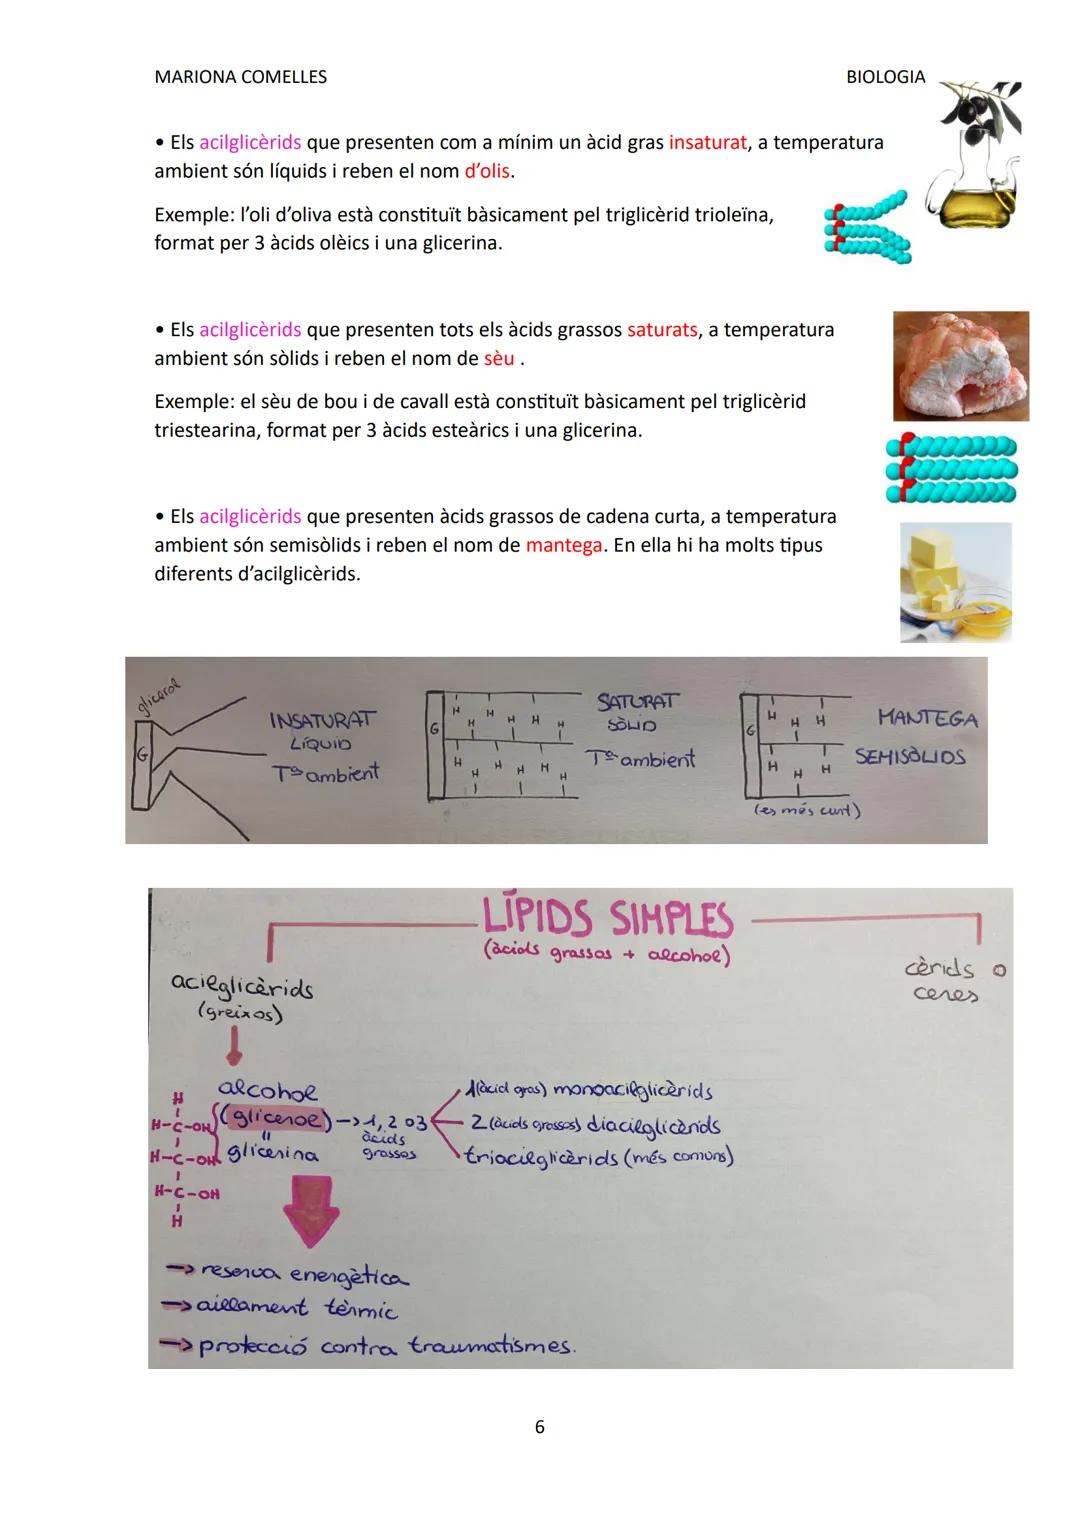 MARIONA COMELLES
BIOLOGIA
• Els acilglicèrids que presenten com a mínim un àcid gras insaturat, a temperatura
ambient són líquids i reben el nom d’olis.
Exemple: l’oli d’oliva està constituït bàsicament pel triglicèrid trioleïna,
format per 3 àcids olèics i una glicerina.
• Els acilglicèrids que presenten tots els àcids grassos saturats, a temperatura
ambient són sòlids i reben el nom de sèu .
Exemple: el sèu de bou i de cavall està constituït bàsicament pel triglicèrid
triestearina, format per 3 àcids esteàrics i una glicerina.
• Els acilglicèrids que presenten àcids grassos de cadena curta, a temperatura
ambient són semisòlids i reben el nom de mantega. En ella hi ha molts tipus
diferents d’acilglicèrids.
glicerol
G
INSATURAT
LÍQUID
Tª ambient
G
H H H H H H
H H H H H H
SATURAT
SÒLID
Tª ambient
G
H H H
H H H
(es més curt)
MANTEGA
SEMISÒLIDS
LÍPIDS SIMPLES
(àcids grassos + alcohol)
acilglicèrids
(greixos)
cèrids o
ceres
alcohol
(glicerol) → 1, 2 o 3
àcids
grassos
"
glicerina
H
H-C-OH
H-C-OH
H-C-OH
H
1 (àcid gras) monoacilglicèrids
2 (àcids grassos) diacilglicèrids
triacilglicèrids (més comuns)
→ reserva energètica
→ aïllament tèrmic
→ protecció contra traumatismes.
6